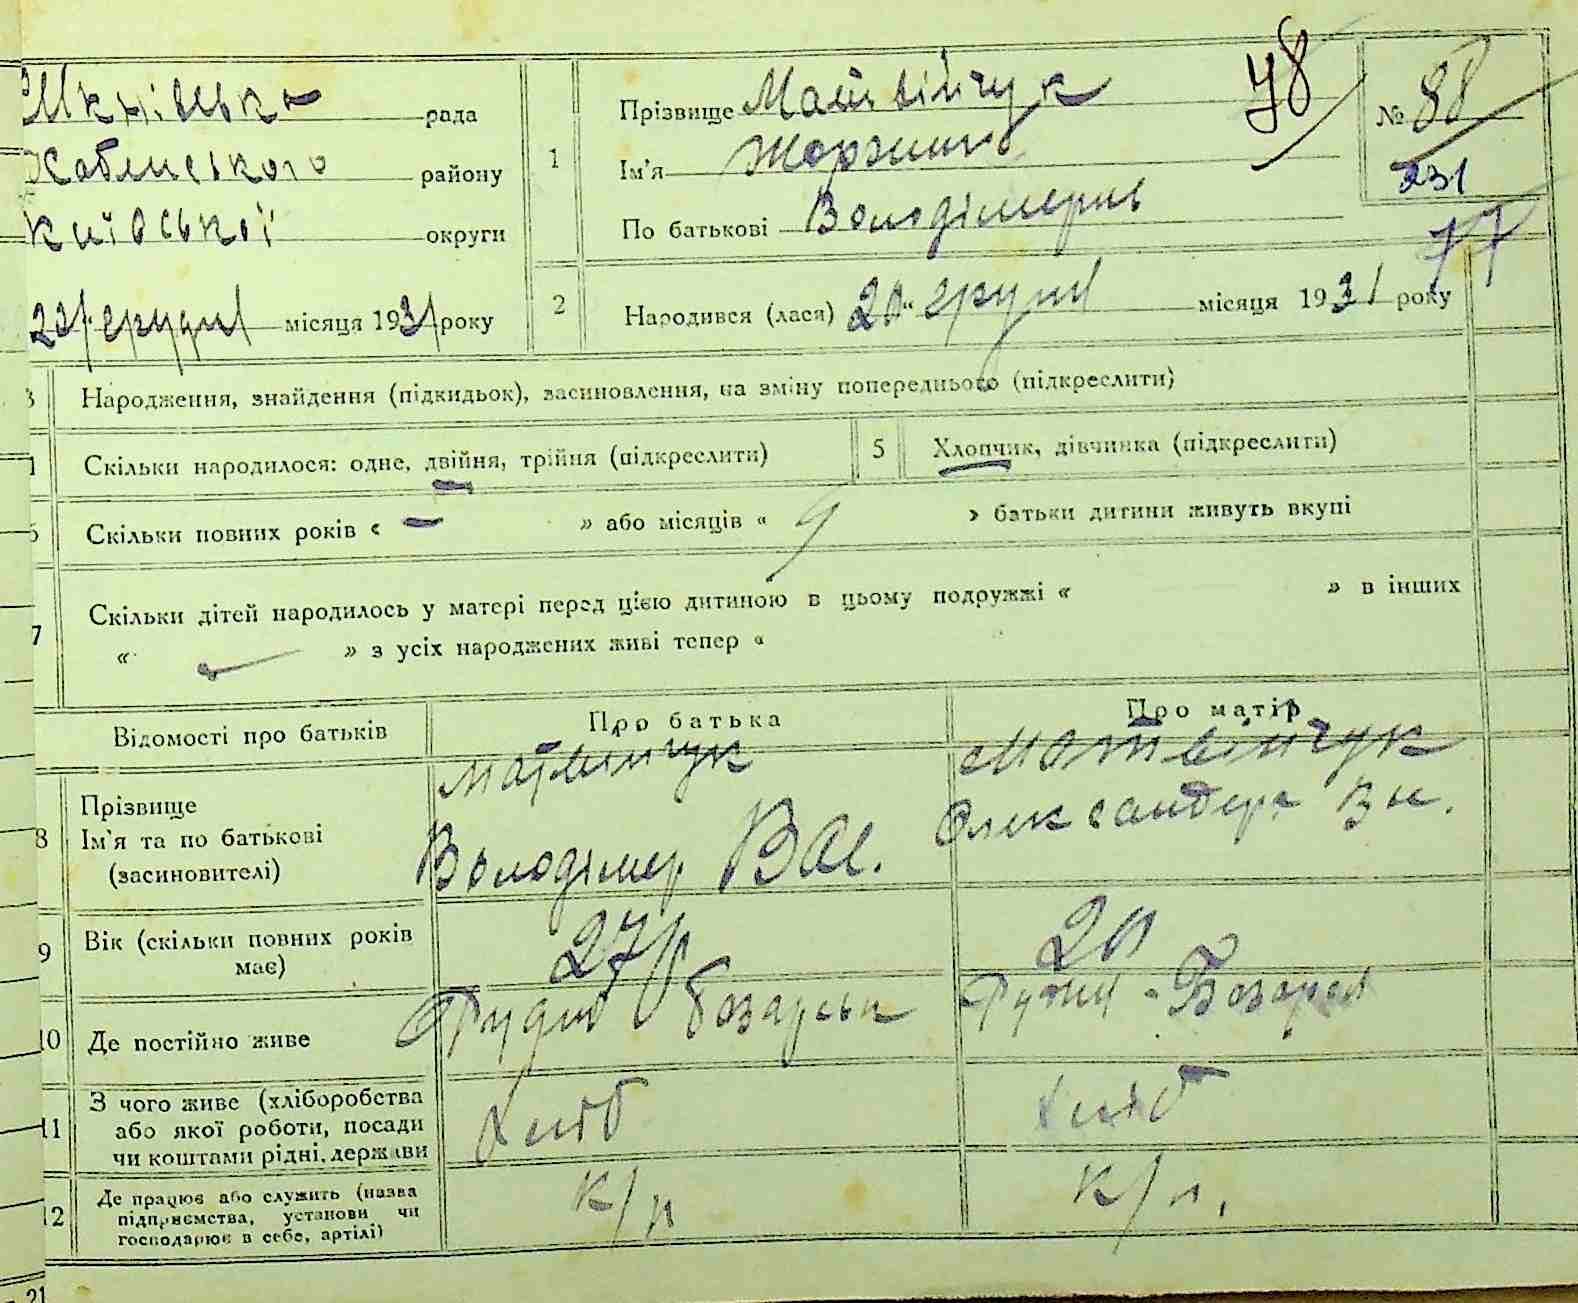 рада
району
Київської округи
місяця 1931 року
1
Прізвище Матвійчук
Ім'я
По батькові Володімерів
48
№ 88
231
77
2
Народився (лася) 20 " грудня місяця 1931 року
Народження, знайдення (підкидьок), засиновлення, на зміну попереднього (підкреслити)
Скільки народилося: одне, двійня, трійня (підкреслити)
5
Хлопчик, дівчинка (підкреслити)
Скільки повних років « – » або місяців « 9 » батьки дитини живуть вкупі
7
Скільки дітей народилось у матері перед цією дитиною в цьому подружжі « » в інших
« » з усіх народжених живі тепер «
Відомості про батьків
Про батька
Про матір
8
Прізвище
Ім'я та по батькові
(засиновителі)
Матвійчук
Володімер Вас.
Матвійчук
Олександера
9
Вік (скільки повних років
має)
27
20
10
Де постійно живе
11
З чого живе (хліборобства
або якої роботи, посади
чи коштами рідні, держави
хліб
хліб
12
Де працює або служить (назва
підприємства, установи чи
господарює в себе, артілі)
к/п
к/п.
21